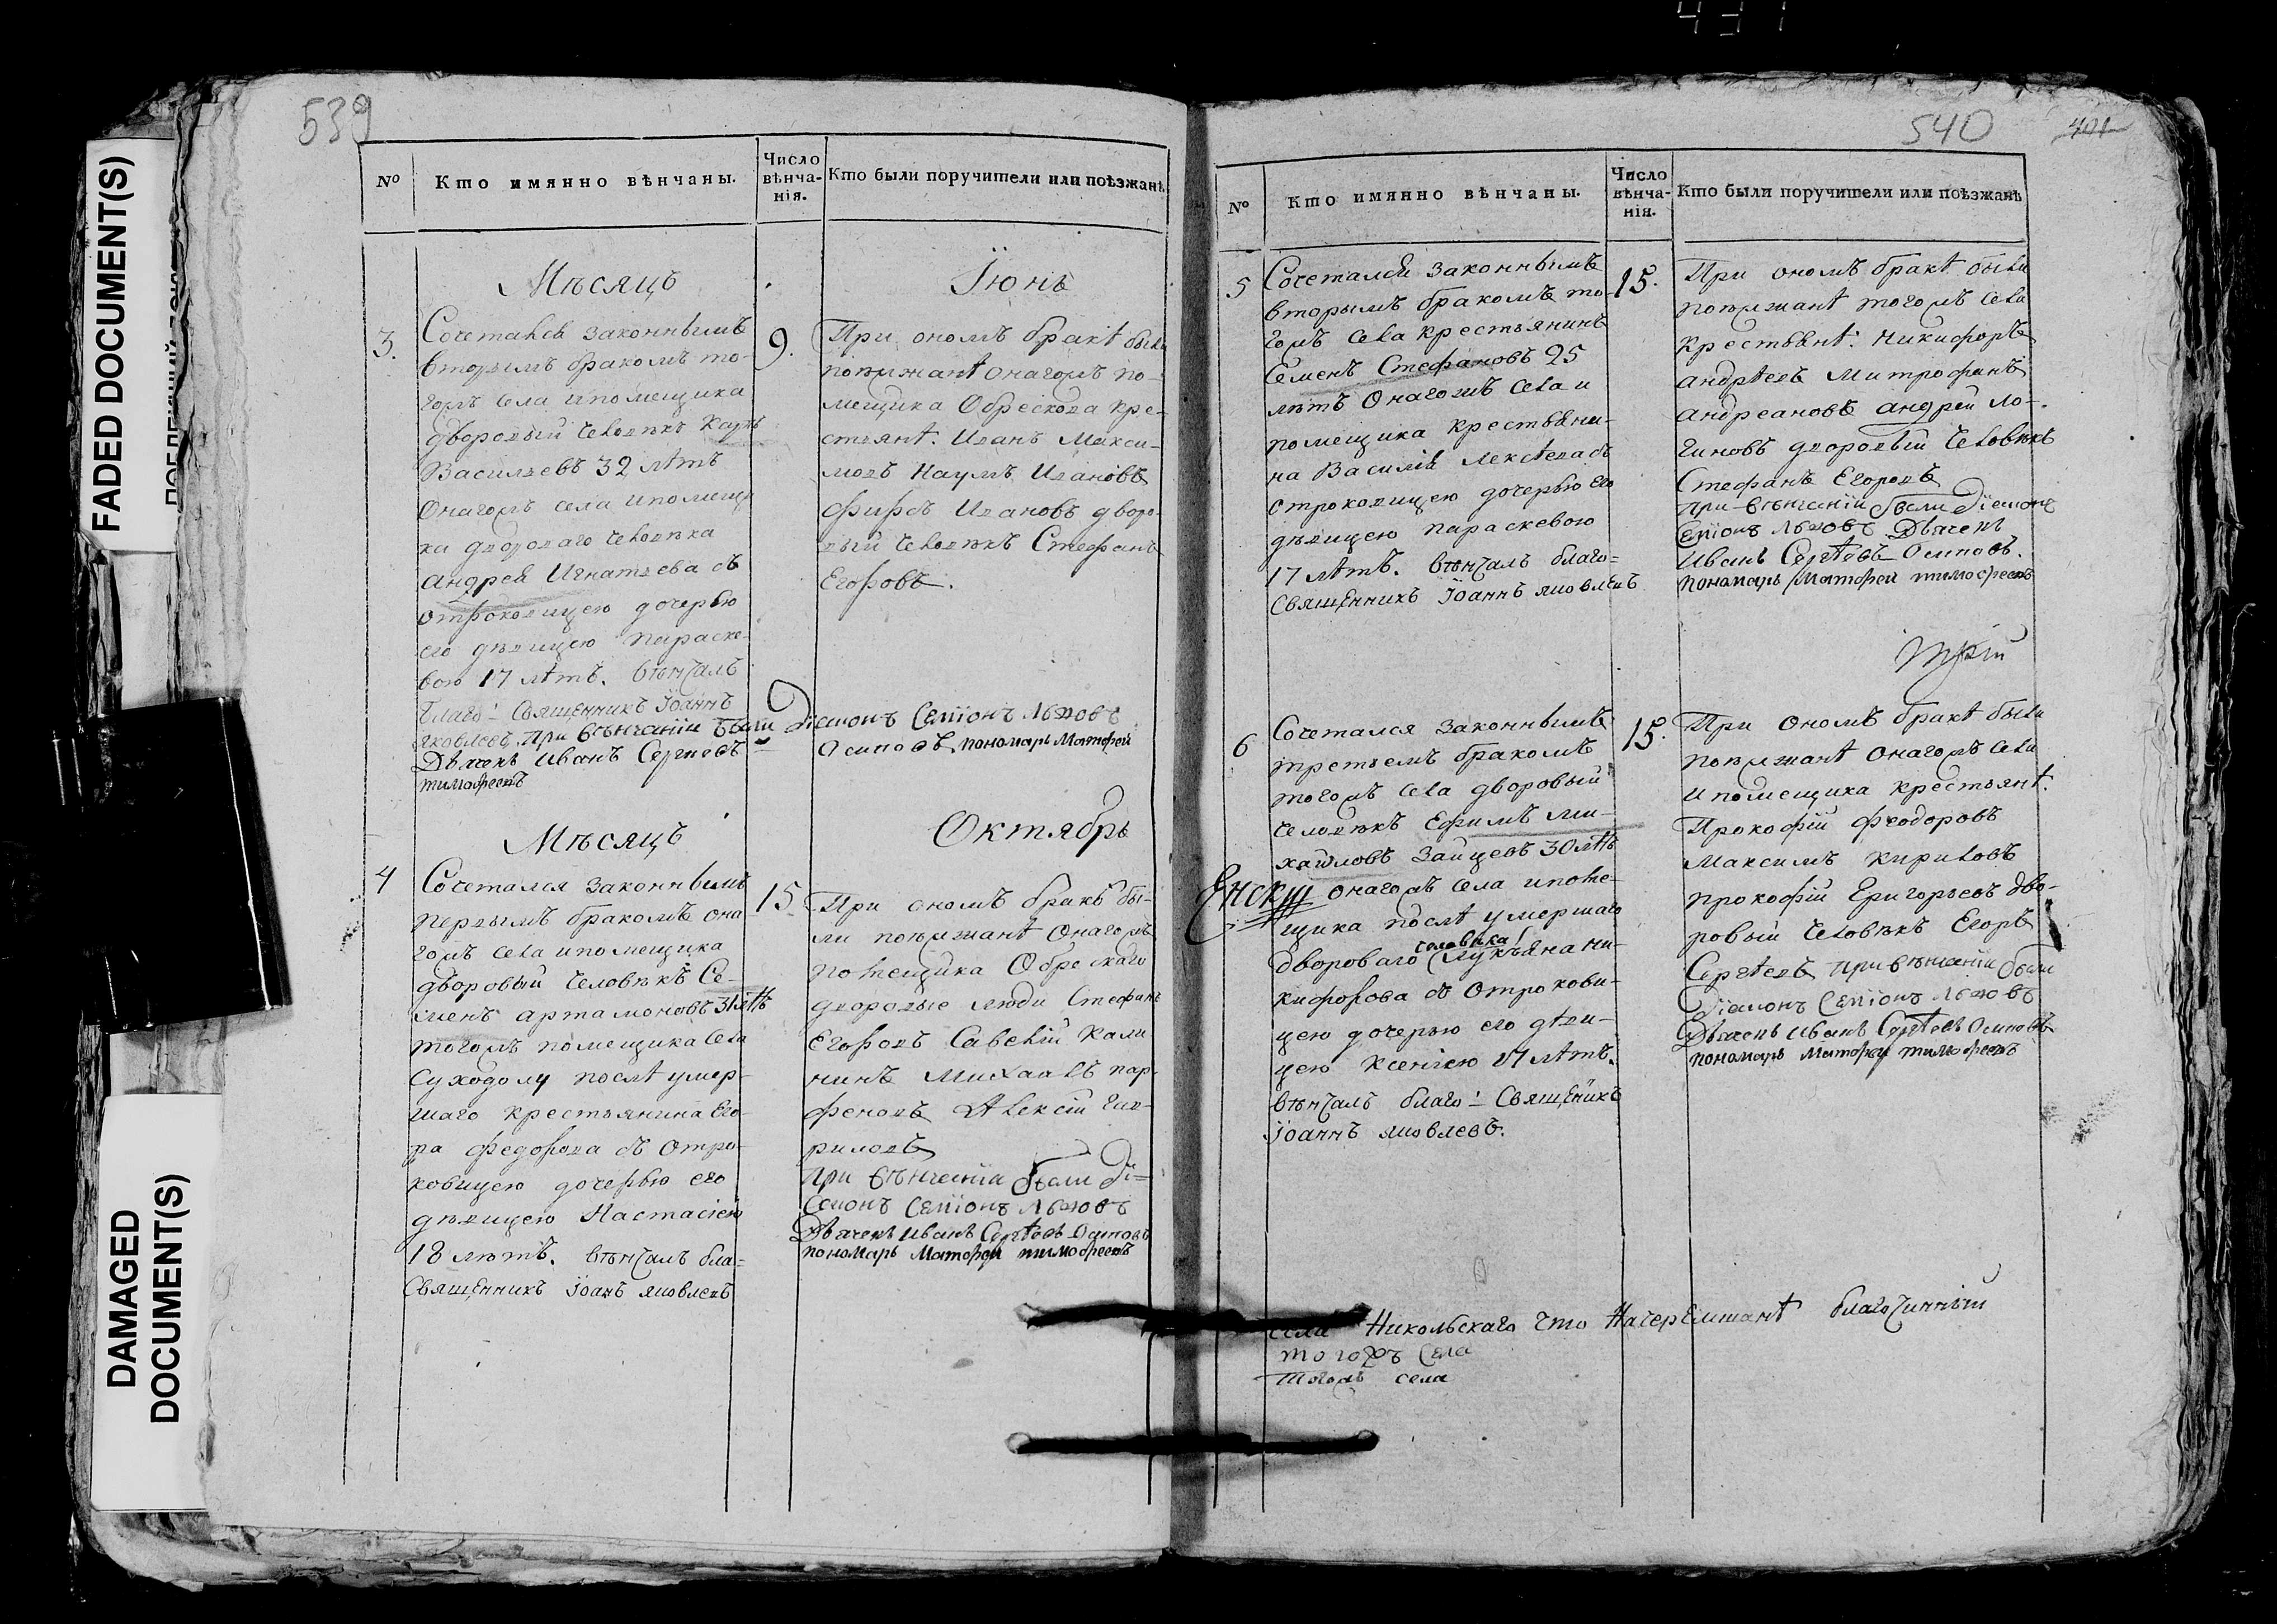 431
FADED DOCUMENT(S)
DAMAGED
DOCUMENT(S)
539
№
Кто имянно вѣнчаны.
Число
вѣнча-
нія.
Кто были поручители или поѣзжанѣ
Мѣсяцъ
Їюнь
3.
Сочетался законнымъ
вторымъ бракомъ то-
гожъ села ипомещика
дворовый человѣкъ
Васильевъ 32 лѣтъ
Онагожъ села ипомещи
ка двороваго человѣка
андрея Игнатьева съ
отроковицею дочерью
его дѣвицею параске-
вою 17 лѣтъ. вѣнчалъ
благо: Священникъ Іоаннъ
яковлевъ. при вѣнчаніи были Діаконъ Семіонъ Львовъ
Дьячекъ иванъ Сергѣевъ Осиповъ, пономарь Матфей
тимофеевъ
9.
При ономъ бракѣ были
поѣзжанѣ онагожъ по-
мещика Обрескова кре-
стьянѣ. Иванъ Макси-
мовъ Наумъ Ивановъ
фирсъ Ивановъ дворо-
вый человѣкъ Стефанъ
Егоровъ.
Мѣсяцъ
Октябрь
4
Сочетался законнымъ
первымъ бракомъ она
гожъ села ипомещика
дворовый человѣкъ Се-
менъ артамоновъ 31 лѣтъ
тогожъ помещика села
Суходолу послѣ умер-
шаго крестьянина Его-
ра федорова съ отро-
ковицею дочерью его
дѣвицею Настасіею
18 лѣтъ. вѣнчалъ бла-
Священникъ Іоанъ яковлевъ
15
При ономъ бракѣ бы-
ли поѣзжанѣ онагожъ
помещика Обрескаго
дворовые люди Стефанъ
Егоровъ Савелій Кали
нинъ Михаилъ пар-
феновъ Алексій гав-
риловъ
при вѣнчаніи были Ді-
аконъ Семіонъ Львовъ
Дьячекъ иванъ Сергѣевъ Осиповъ
пономарь Матфей тимофеевъ
540
401
№
Кто имянно вѣнчаны.
Число
вѣнча-
нія.
Кто были поручители или поѣзжанѣ
5
Сочетался законнымъ
вторымъ бракомъ то-
гожъ села крестьянинъ
Семенъ Стефановъ 25
лѣтъ Онагожъ села и
помещика крестьяни-
на Василія Лексѣева съ
отроковицею дочерью его
дѣвицею параскевою
17 лѣтъ. вѣнчалъ благо-
Священникъ Іоаннъ яковлевъ
15.
При ономъ бракѣ были
поѣзжанѣ тогожъ села
крестьянѣ: Никифоръ
андрѣевъ Митрофанъ
андреановъ андрей Ло-
гиновъ дворовый человѣкъ
Стефанъ Егоровъ
при вѣнчаніи были Діаконъ
Семіонъ Львовъ Дьячекъ
Иванъ Сергѣевъ Осиповъ.
пономарь Матфей тимофеевъ
6
Сочетался законнымъ
третьемъ бракомъ
тогожъ села дворовый
человѣкъ Ефимъ ми-
хайловъ Зайцевъ 30 лѣтъ
онагожъ села ипоме-
щика послѣ умершаго
человѣка
двороваго Лукъяна ни-
кифорова съ отрокови-
цею дочерью его дѣви-
цею Ксеніею 17 лѣтъ.
вѣнчалъ благо: Священикъ
Іоаннъ яковлевъ.
15.
При ономъ бракѣ были
поѣзжанѣ онагожъ села
и помещика крестьянѣ.
Прокофій феодоровъ
Максимъ кириловъ
прокофій Григорьевъ дво-
ровый человѣкъ Егоръ
Сергѣевъ при вѣнчаніи были
Діаконъ Семіонъ Львовъ
Дьячекъ иванъ Сергѣевъ Осиповъ
пономарь Матфей тимофеевъ
села Никольскаго что Начеремшанѣ благочинный
тогожъ села
тогожъ села